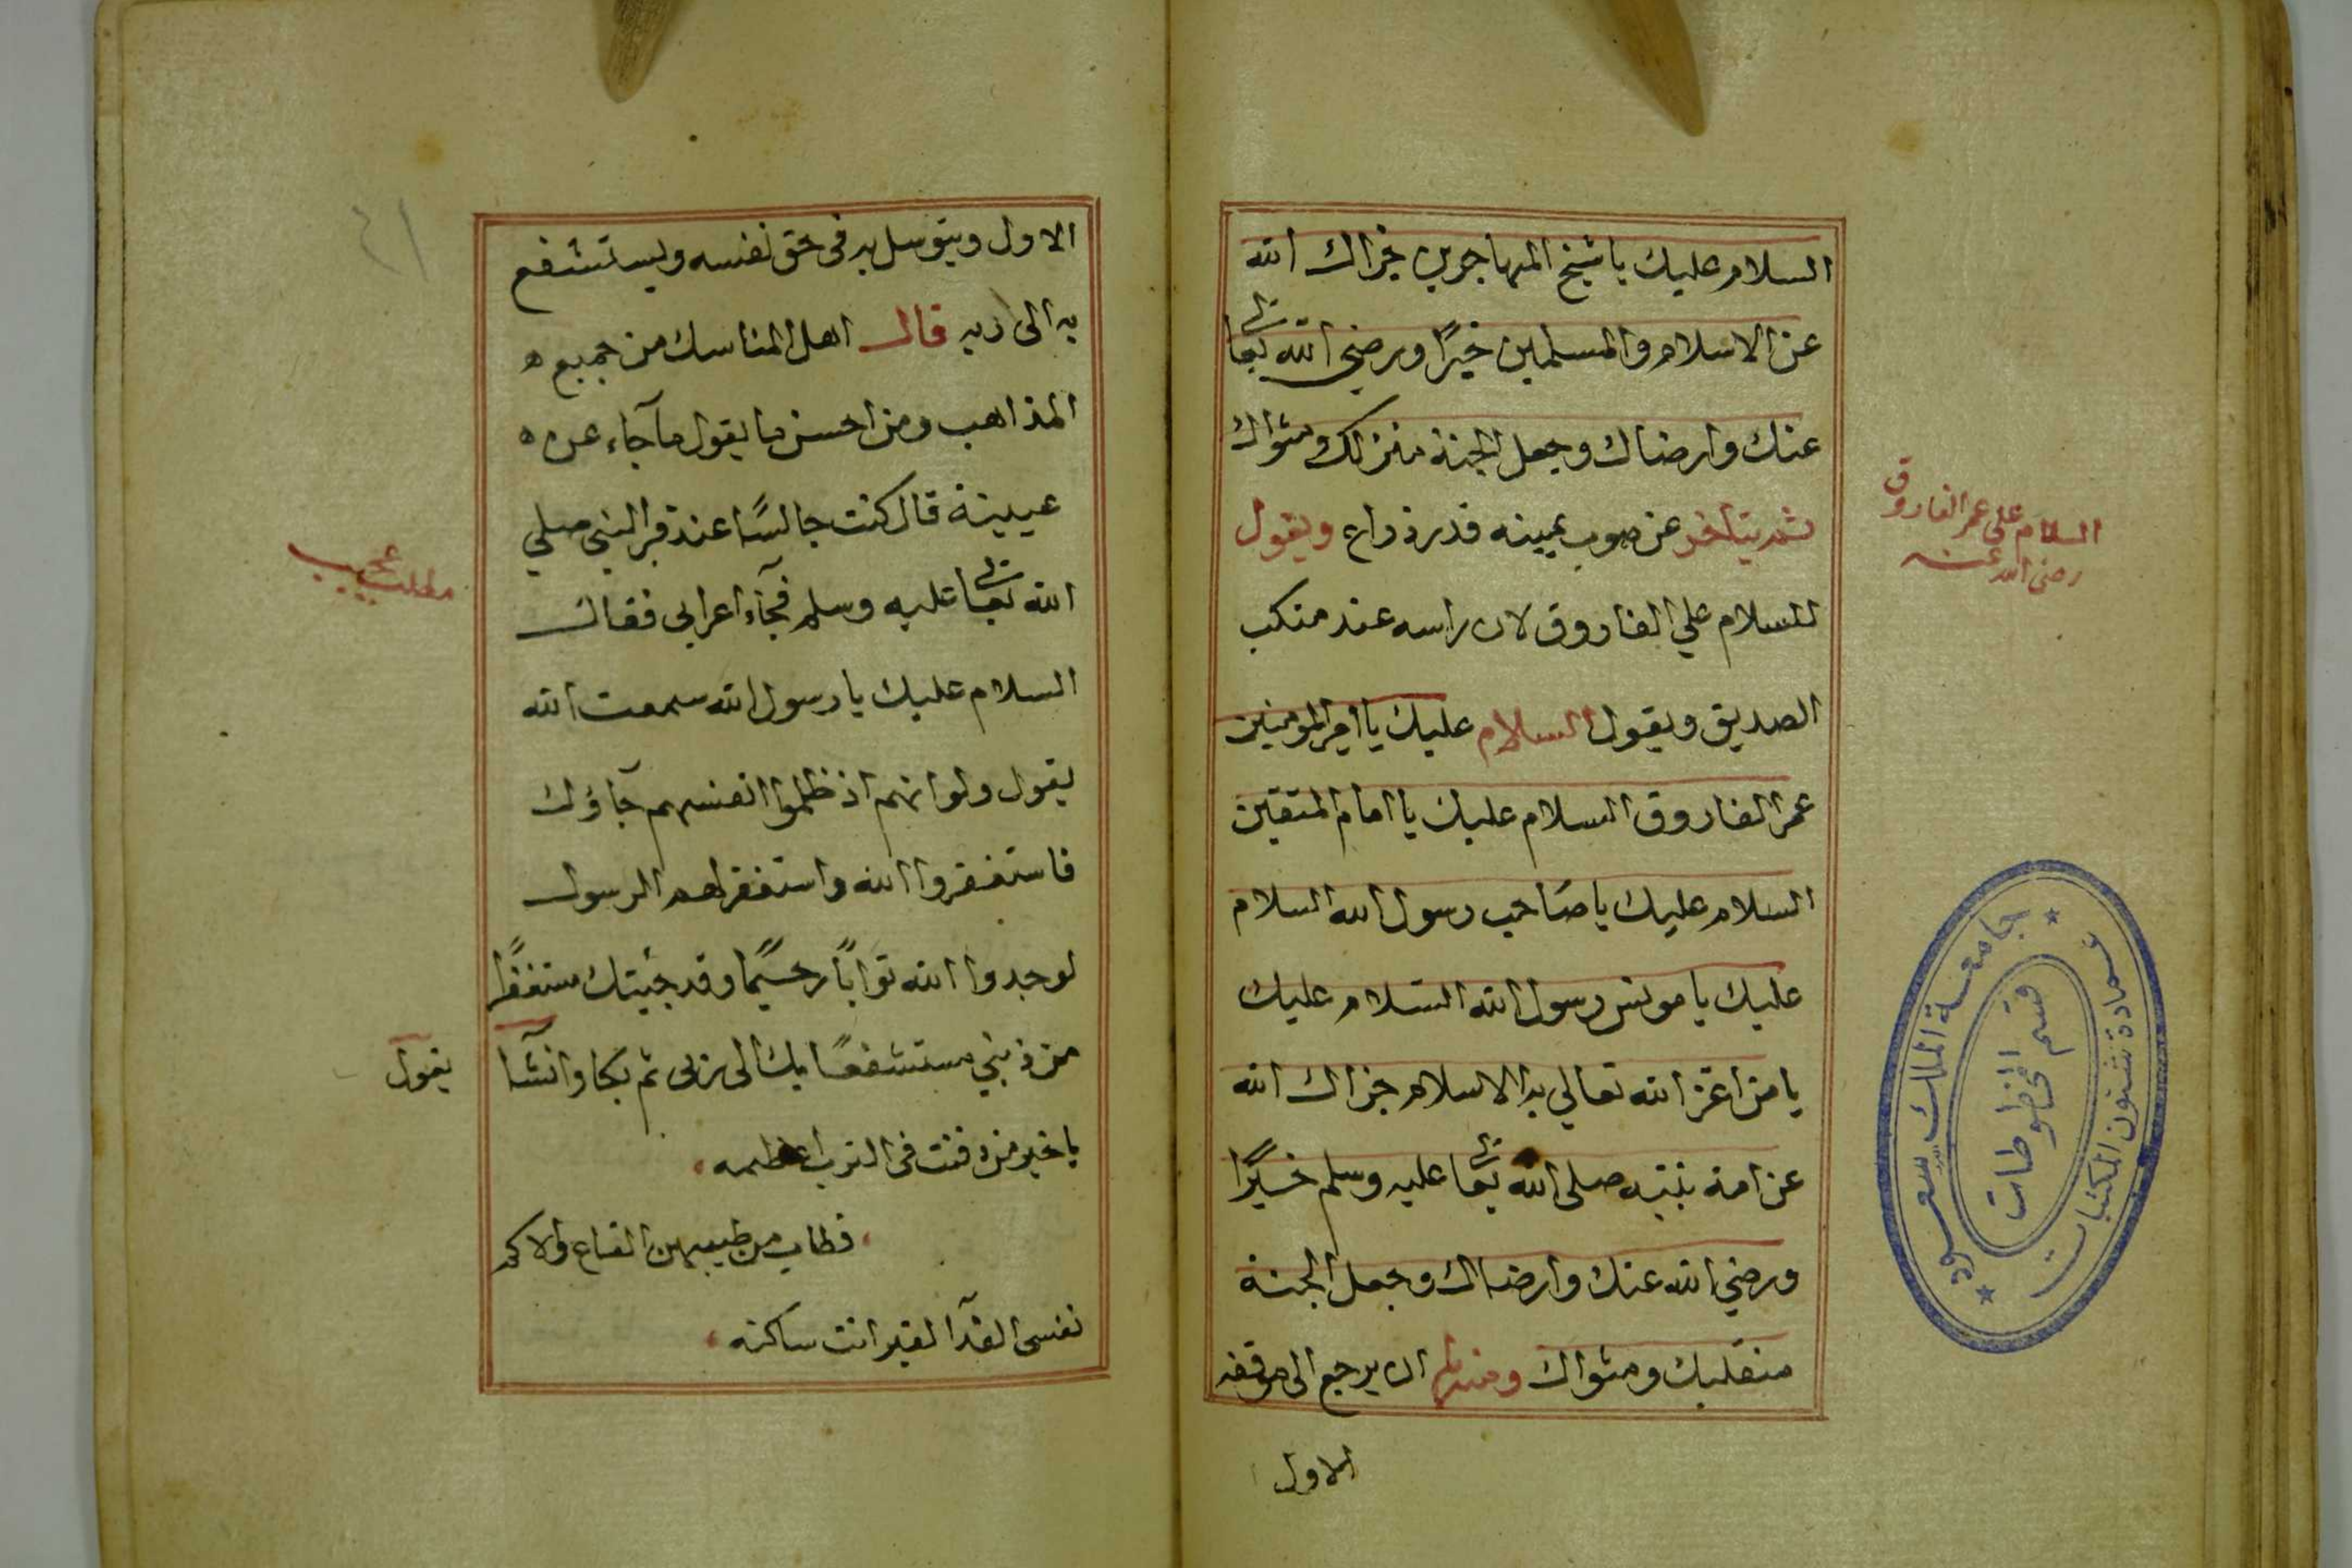 السلام عليك يا شيخ المهاجرين جزاك الله
عن الاسلام والمسلمين خيرًا ورضي الله تعالى
عنك وارضاك وجعل الجنة منزلك ومثواك
ثم يتاخر عن صوب يمينه قدر ذراع ويقول
للسلام علي الفاروق لان راسه عند منكب
الصديق ويقول السلام عليك يا امير المومنين
عمر الفاروق السلام عليك يا امام المتقين
السلام عليك يا صاحب رسول الله السلام
عليك يا مونس رسول الله السلام عليك
يا من اعز الله تعالي به الاسلام جزاك الله
عن امة نبيه صلى الله تعالى عليه وسلم خيرًا
ورضي الله عنك وارضاك وجعل الجنة
منقلبك ومثواك ومنها ان يرجع الى موقفه
الاول
السلام على عمر الفاروق
رضى الله عنه
جامعة الملك سعود
عمادة شئون المكتبات
قسم المخطوطات
٤١
الاول ويتوسل به فى حق نفسه ويستشفع
به الى ربه قال اهل المناسك من جميع ه
المذاهب ومن احسن ما يقول ما جآء عن ه
عيينة قال كنت جالسًا عند قبر النبي صلي
الله تعالى عليه وسلم فجآء اعرابى فقال
السلام عليك يا رسول الله سمعت الله
يقول ولو انهم اذ ظلموا انفسهم جآؤك
فاستغفروا الله واستغفر لهم الرسول
لوجدوا الله توابًا رحيمًا وقد جئيتك مستغفرًا
من ذنبي مستشفعًا بك الى ربى ثم بكا وانشآ
يقول
يا خير من دفنت فى الترب اعظمه
فطاب من طيبهن القاع والاكم
نفسى الفدآ لقبر انت ساكنه
مطلب عجيب